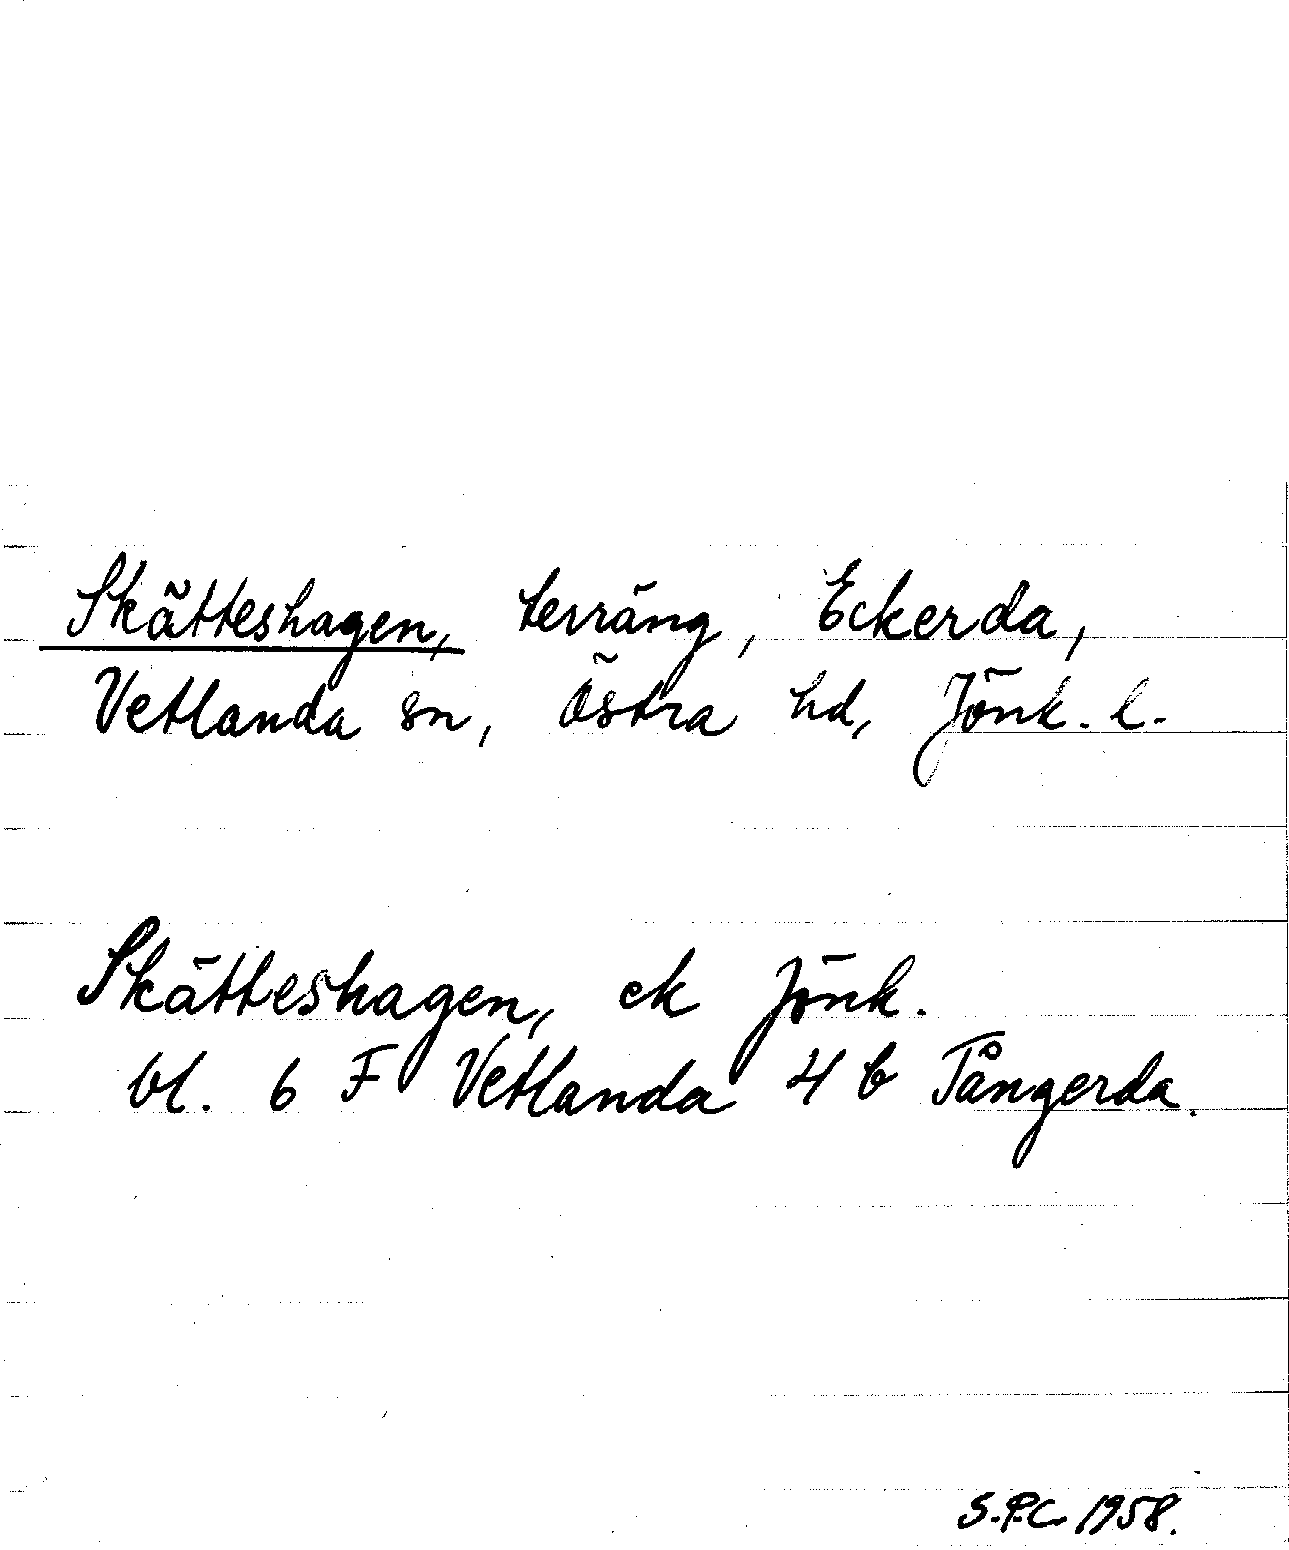 Skätteshagen, terräng, Eckerda,
Vetlanda sn, Östra hd, Jönk. l.
Skätteshagen, ek Jönk.
bl. 6 F Vetlanda 4 b Tångerda.
S.P.C. 1958.